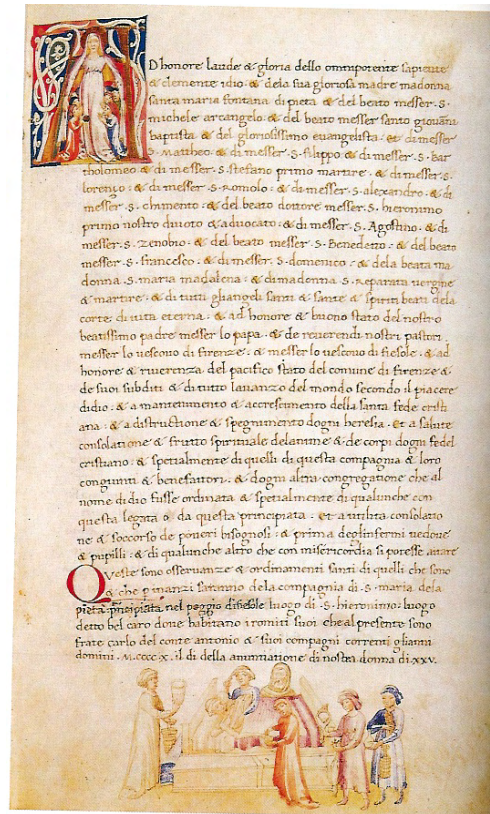 AD honore laude & gloria dello omnipotente sapiente
& clemente idio · & dela sua gloriosa madre madonna
santa maria fontana di pieta & del beato messer · s ·
michele arcangelo & del beato messer santo giovāni
baptista & del gloriosissimo euangelista · et di messer
s · Mattheo · & di messer · s · filippo & di messer · s · bar
tholomeo & di messer · s · stefano primo martire · & di messer · s ·
lorenço · & di messer · s · romolo · & di messer · s · alexandro · & di
messer · s · chimento · & del beato dottore messer · s · hieronimo
primo nostro diuoto & aduocato · & di messer · s · Agostino · & di
messer · s · zenobio · & del beato messer · s · Benedetto · & del beato
messer · s · francesco · & di messer · s · domenico · & dela beata ma
donna · s · maria madalena · & di madonna · s · reparata uergine
& martire · & di tutti gliangeli santi & sante & spiriti beati dela
corte di uita eterna · & ad honore & buono stato del nostro
beatissimo padre messer lo papa · & de reuerendi nostri pastori ·
messer lo uescouo di firenze · & messer lo uescouo di fiesole · & ad
honore & riuerenza del pacifico stato del comune di firenze &
de suoi subditi & di tutto lauanzo del mondo secondo il piacere
didio · & a mantenimento & accrescimento della santa fede cristi
ana · & a distructione & spegnimento dogni heresia · Et a salute
consolatione & frutto spirituale delanime & de corpi dogni fedel
cristiano · & spetialmente di quelli di questa compagnia & loro
congiunti & benefattori · & dogni altra congregatione che al
nome didio fusse ordinata & spetialmente di qualunche con
questa legata o da questa principiata · et a utilita consolatio
ne & soccorso de poueri bisognosi · & prima deglinfermi uedoue
& pupilli · & di qualunche altro che con misericordia si potesse aitare
Queste sono osseruanze & ordinamenti santi di quelli che sono
& che p inanzi saranno dela compagnia di · s · maria dela
pieta · principiata nel poggio difiesole luogo di · s · hieronimo · luogo
detto bel caro doue habitano iromiti suoi che al presente sono
frate carlo del conte antonio & suoi compagni correnti glianni
domini · M.cccc.x. il di della anuntiatione di nostra donna di xxv.